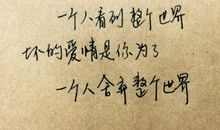 一个人看到整个世界
坏的爱情是你为了
一个人舍弃整个世界